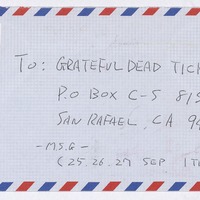 To: GRATEFUL DEAD TICK
P.O BOX C-S 815
SAN RAFAEL, CA 94
- M.S.G -
(25.26.27 SEP